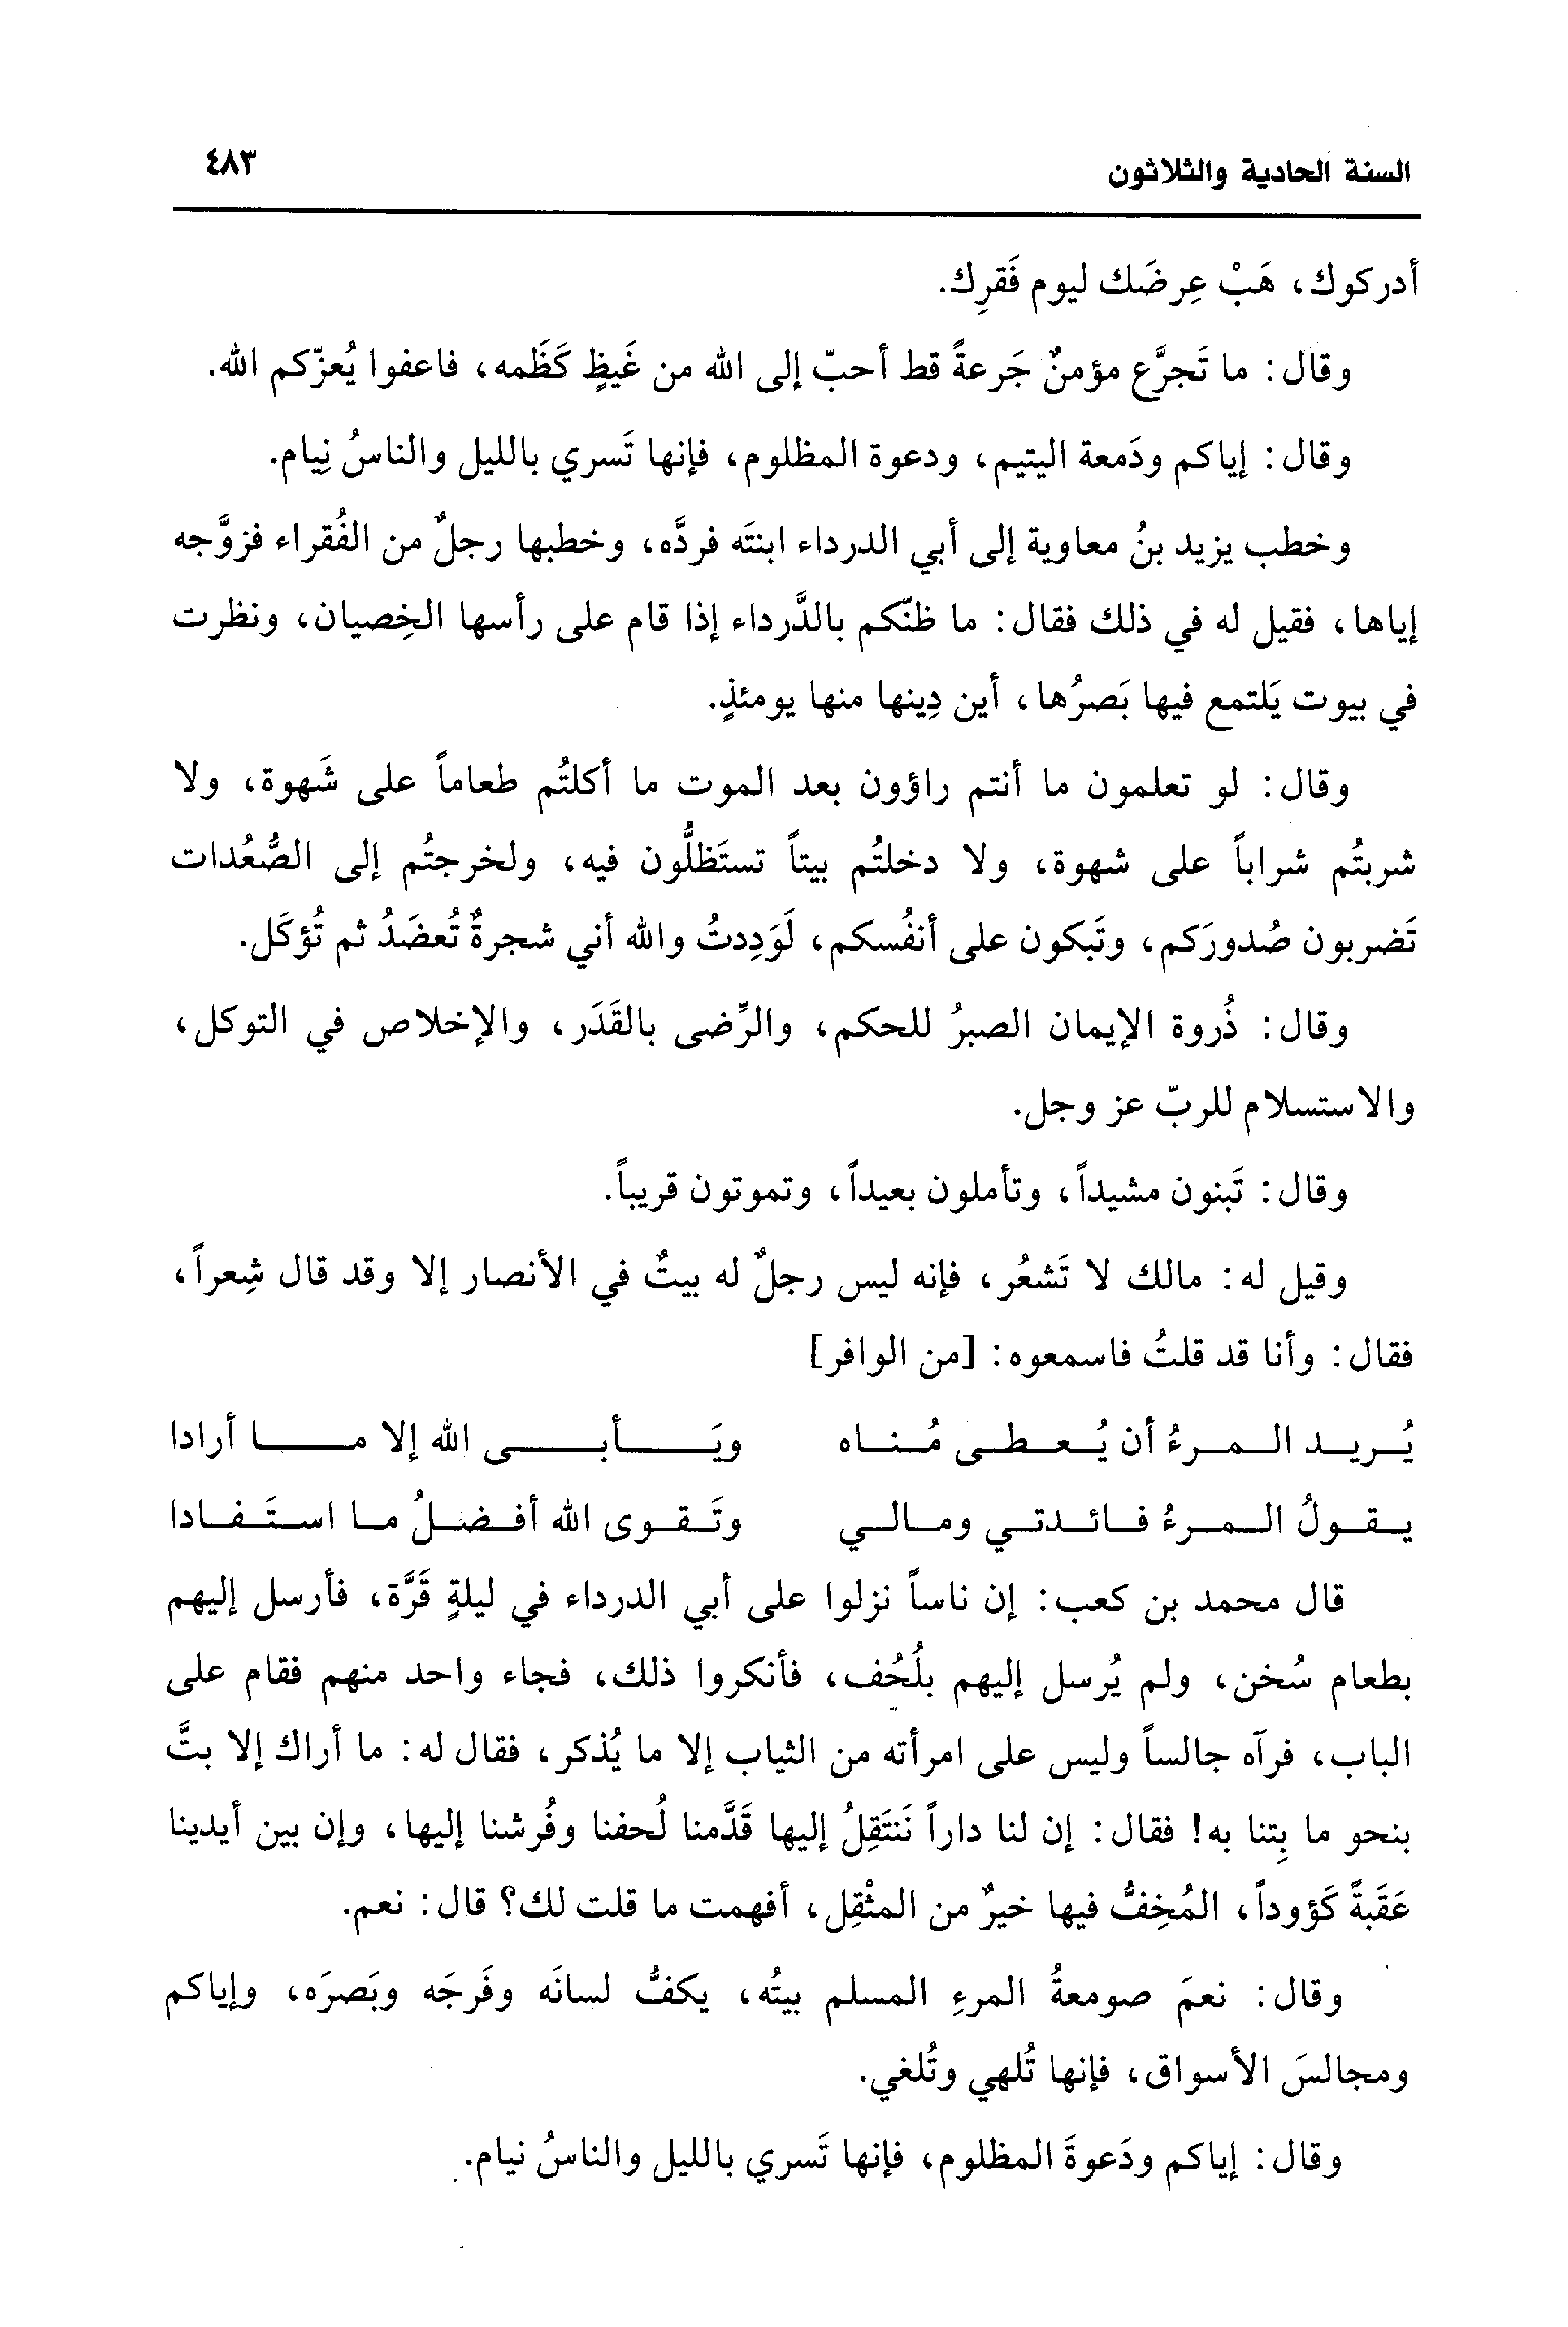 السنة الحادية والثلاثون ٤٨٣
أدركوك، هَبْ عِرضَك ليوم فَقرِك.
وقال: ما تَجرَّع مؤمنٌ جَرعةً قط أحبّ إلى الله من غَيظٍ كَظَمه، فاعفوا يُعزّكم الله.
وقال: إياكم ودَمعة اليتيم، ودعوة المظلوم، فإنها تَسري بالليل والناسُ نِيام.
وخطب يزيد بنُ معاوية إلى أبي الدرداء ابنتَه فردَّه، وخطبها رجلٌ من الفُقراء فزوَّجه
إياها، فقيل له في ذلك فقال: ما ظنّكم بالدَّرداء إذا قام على رأسها الخِصيان، ونظرت
في بيوت يَلتمع فيها بَصرُها، أين دِينها منها يومئذٍ.
وقال: لو تعلمون ما أنتم راؤون بعد الموت ما أكلتُم طعاماً على شَهوة، ولا
شربتُم شراباً على شهوة، ولا دخلتُم بيتاً تستَظلُّون فيه، ولخرجتُم إلى الصُّعُدات
تَضربون صُدورَكم، وتَبكون على أنفُسكم، لَوَدِدتُ والله أني شجرةٌ تُعضَدُ ثم تُؤكَل.
وقال: ذُروة الإيمان الصبرُ للحكم، والرِّضى بالقَدَر، والإخلاص في التوكل،
والاستسلام للربّ عز وجل.
وقال: تَبنون مشيداً، وتأملون بعيداً، وتموتون قريباً.
وقيل له: مالك لا تَشعُر، فإنه ليس رجلٌ له بيتٌ في الأنصار إلا وقد قال شِعراً،
فقال: وأنا قد قلتُ فاسمعوه: [من الوافر]
يُريد المرءُ أن يُعطى مُناه ويَأبى الله إلا ما أرادا
يقولُ المرءُ فائدتي ومالي وتَقوى الله أفضلُ ما استَفادا
قال محمد بن كعب: إن ناساً نزلوا على أبي الدرداء في ليلةٍ قَرَّة، فأرسل إليهم
بطعام سُخن، ولم يُرسل إليهم بلُحُف، فأنكروا ذلك، فجاء واحد منهم فقام على
الباب، فرآه جالساً وليس على امرأته من الثياب إلا ما يُذكر، فقال له: ما أراك إلا بتَّ
بنحو ما بِتنا به! فقال: إن لنا داراً نَنتَقِلُ إليها قَدَّمنا لُحفنا وفُرشنا إليها، وإن بين أيدينا
عَقَبةً كَؤوداً، المُخِفُّ فيها خيرٌ من المثْقِل، أفهمت ما قلت لك؟ قال: نعم.
وقال: نعمَ صومعةُ المرءِ المسلم بيتُه، يكفُّ لسانَه وفَرجَه وبَصرَه، وإياكم
ومجالسَ الأسواق، فإنها تُلهي وتُلغي.
وقال: إياكم ودَعوةَ المظلوم، فإنها تَسري بالليل والناسُ نيام.